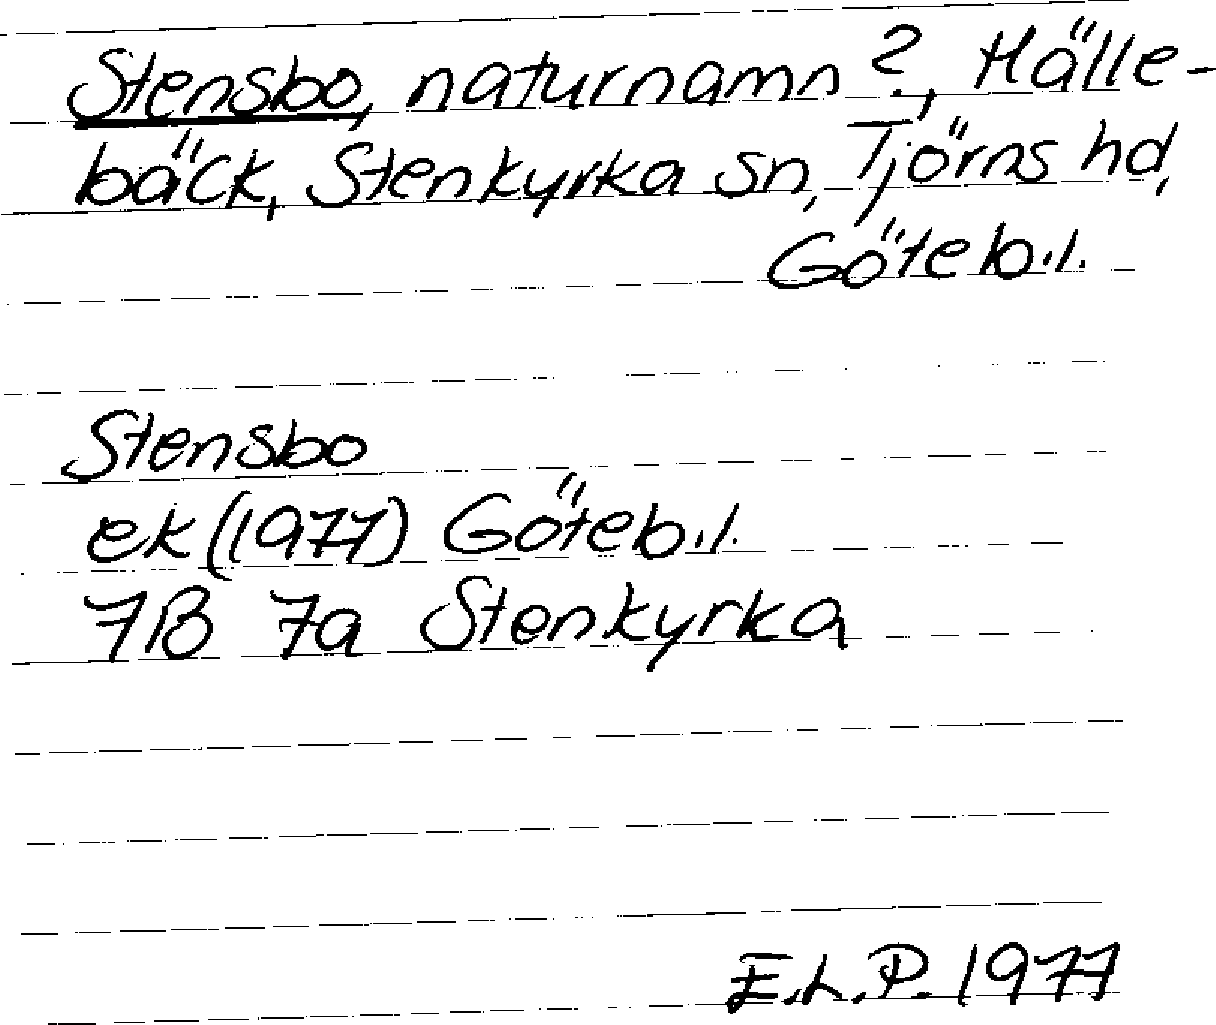 Stensbo, naturnamn?, Hälle-
bäck, Stenkyrka sn, Tjörns hd,
Göteb.l.
Stensbo
ek (1977) Göteb.l.
7B 7a Stenkyrka
E.L.P. 1977